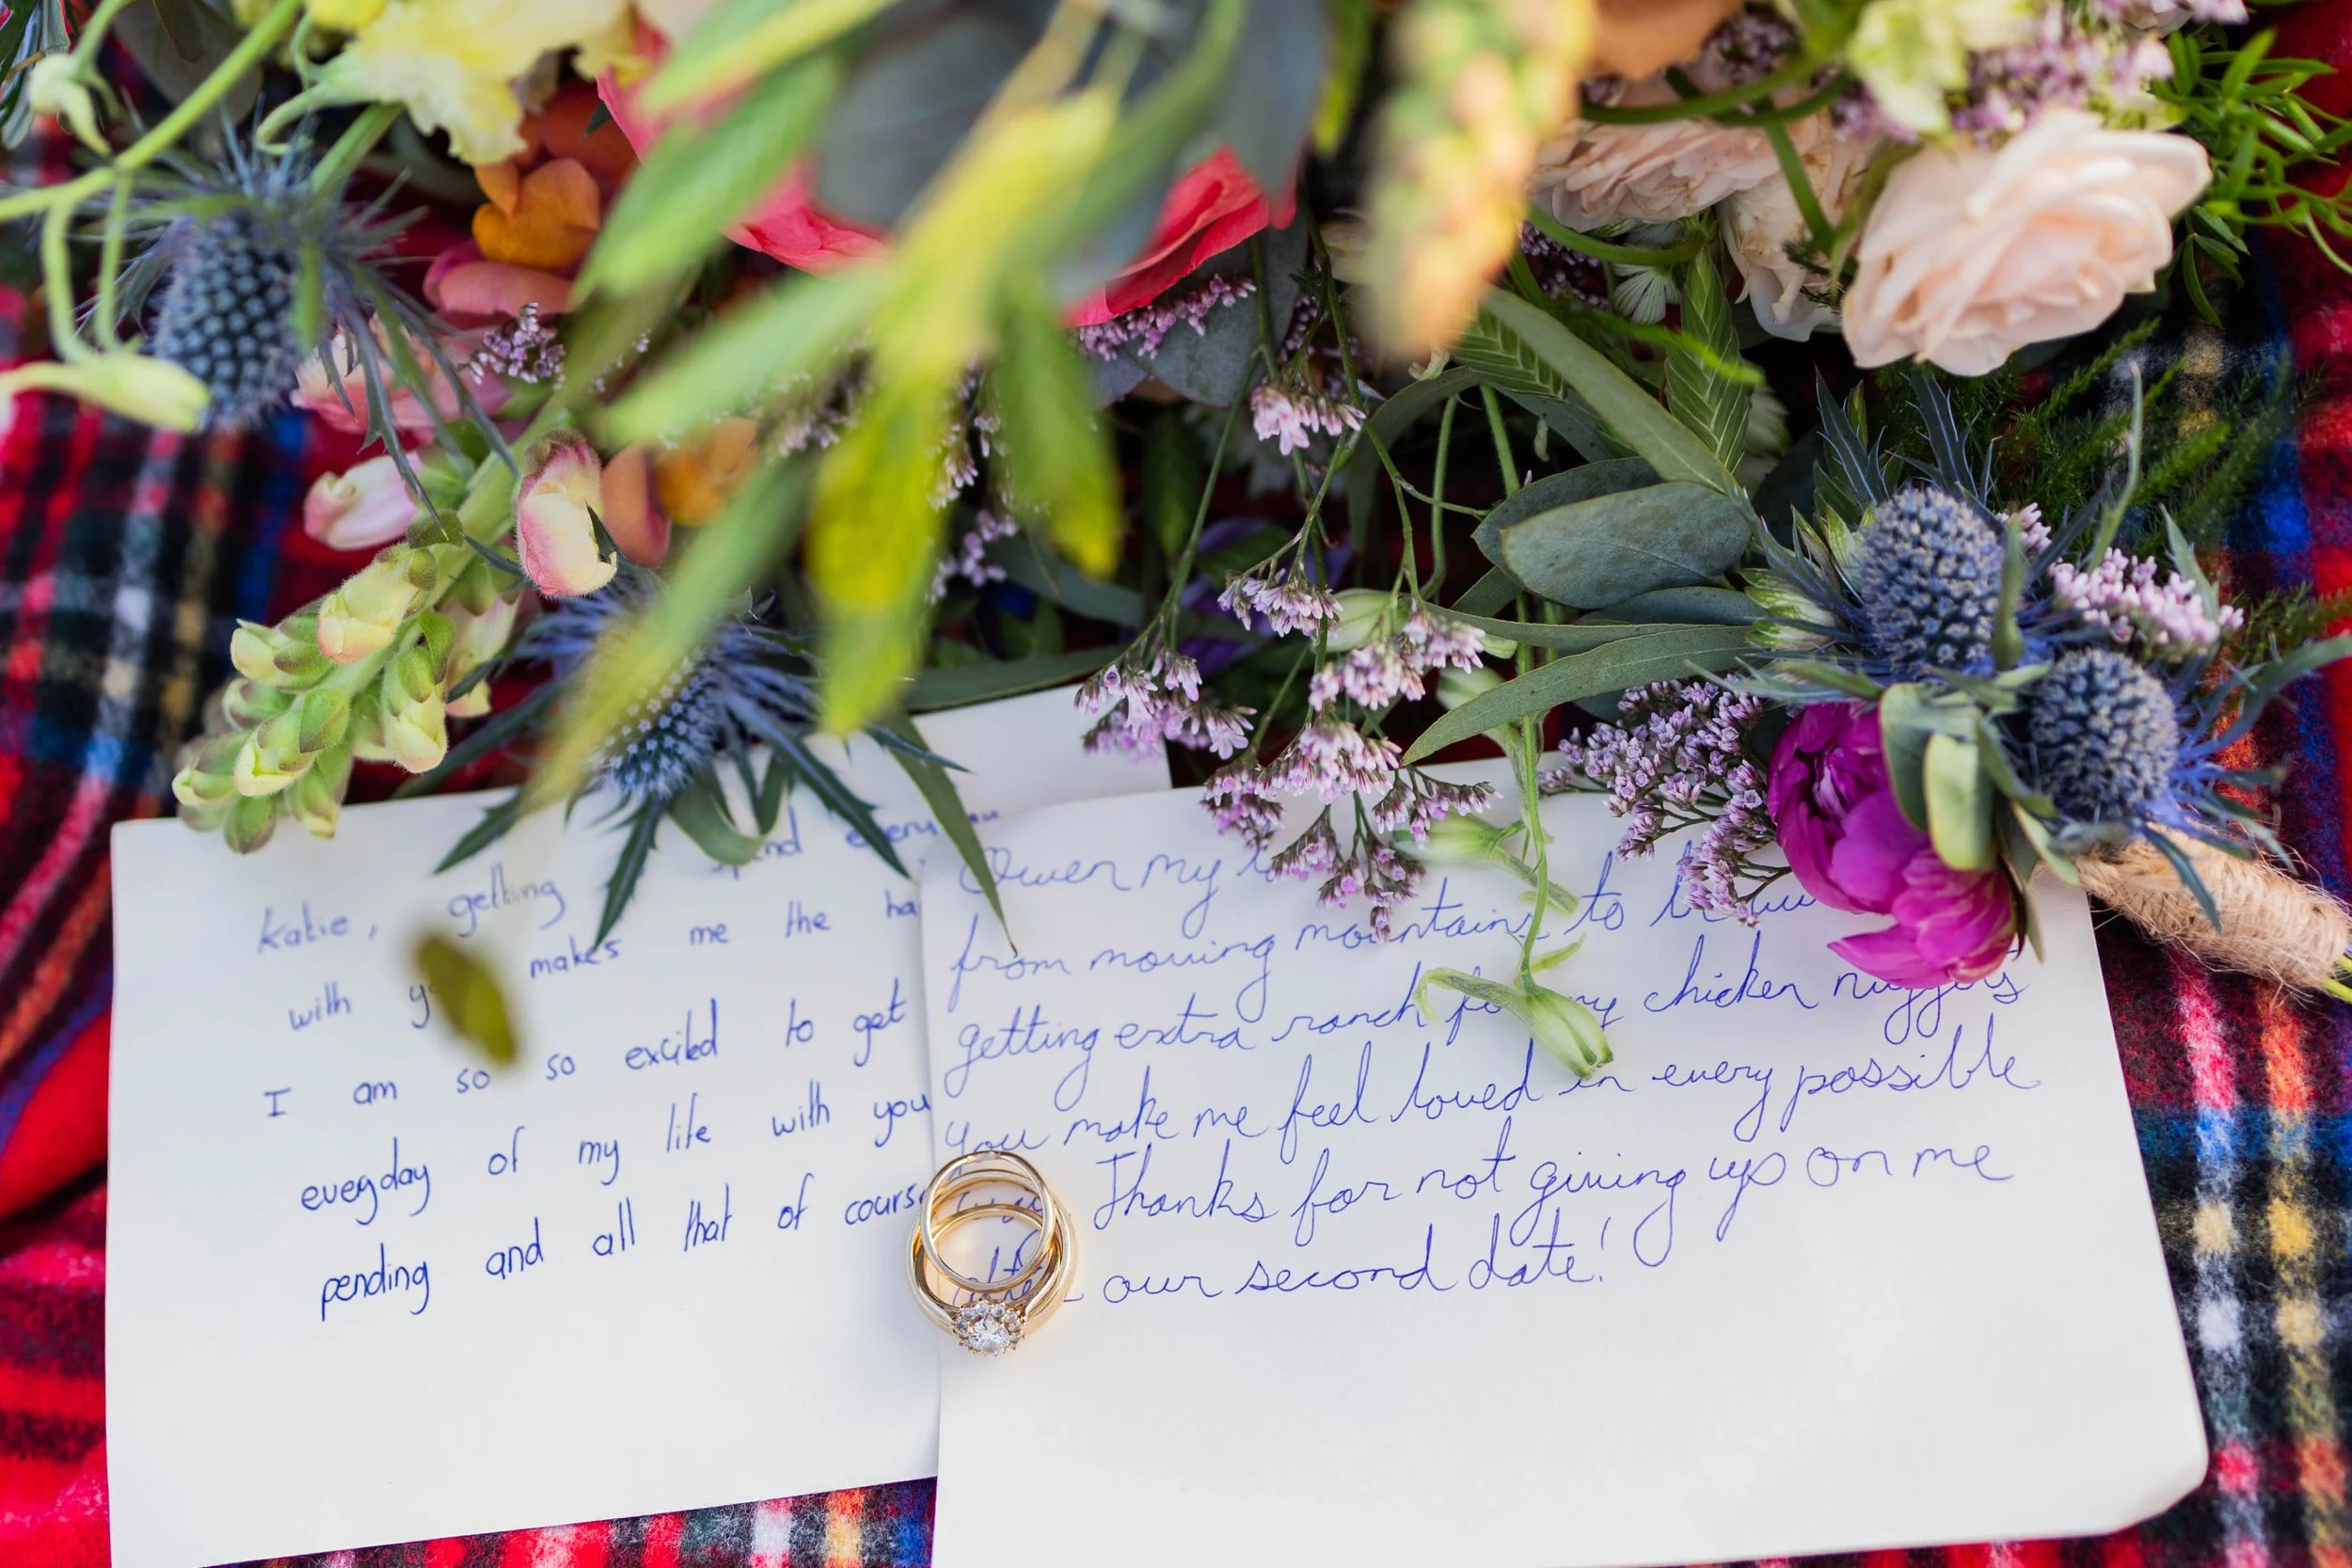 Katie, getting spend every
with makes me the
I am so so excited to get
everyday of my life with you
pending and all that of course
Owen my
from moving mountains to
getting extra ranch my chicken nuggets
you make me feel loved in every possible
Thanks for not giving up on me
after our second date!